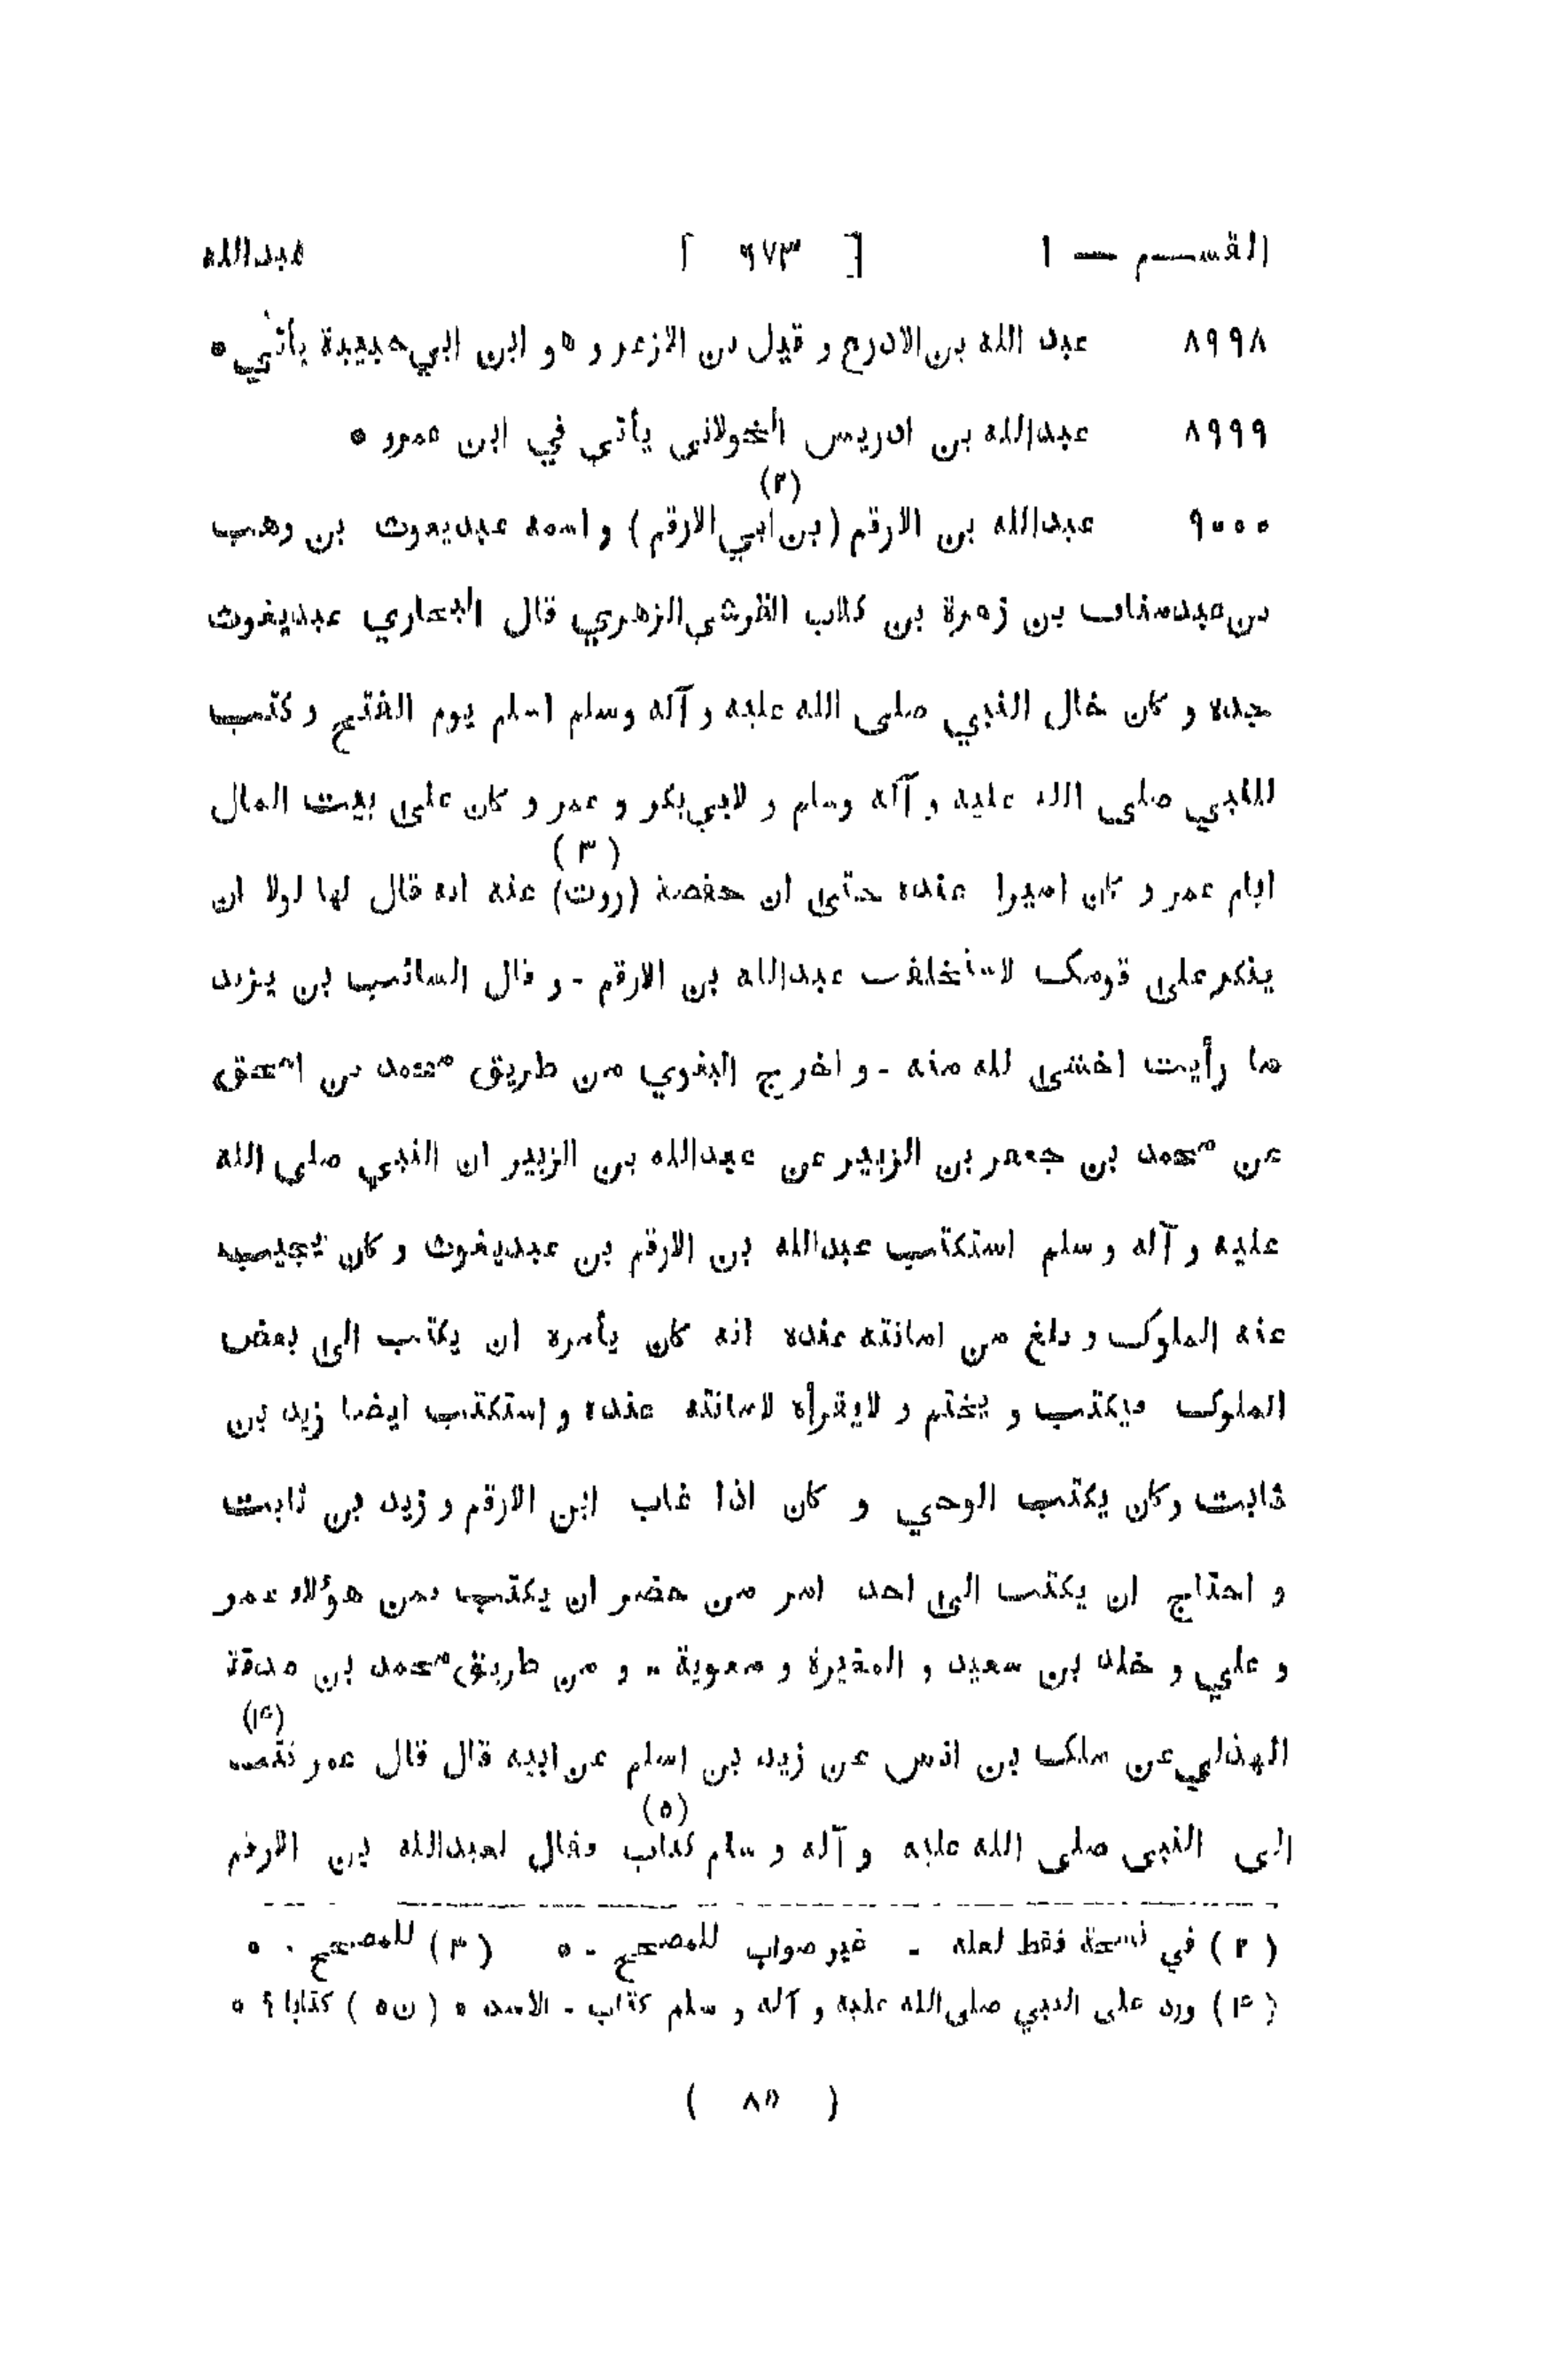 القسم — ١ [ ٦٧٣ ] عبدالله
٨٩٩٨ عبد الله بن الادرع و قيل بن الازعر و هو ابن ابي حبيبة يأتي ٥
٨٩٩٩ عبدالله بن ادريس الخولاني يأتي في ابن عمرو ٥
(٢)
٩٠٠٠ عبدالله بن الارقم (بن ابي الارقم) و اسمه عبديغوث بن وهب
بن عبدمناف بن زهرة بن كلاب القرشي الزهري قال البخاري عبديغوث
جده و كان خال النبي صلى الله عليه و آله وسلم اسلم يوم الفتح و كتب
للنبي صلى الله عليه و آله وسلم و لابي بكر و عمر و كان على بيت المال
(٣)
ايام عمر و كان اميرا عنده حتى ان حفصة (روت) عنه انه قال لها لولا ان
ينكر علي قومك لاستخلفت عبدالله بن الارقم - و قال السائب بن يزيد
ما رأيت اخشى لله منه - و اخرج البغوي من طريق محمد بن اسحق
عن محمد بن جعفر بن الزبير عن عبدالله بن الزبير ان النبي صلى الله
عليه و آله و سلم استكتب عبدالله بن الارقم بن عبديغوث و كان يجيب
عنه الملوك و بلغ من امانته عنده انه كان يأمره ان يكتب الى بعض
الملوك فيكتب و يختم و لايقرأه لامانته عنده و استكتب ايضا زيد بن
ثابت وكان يكتب الوحي و كان اذا غاب ابن الارقم و زيد بن ثابت
و احتاج ان يكتب الى احد امر من حضر ان يكتب فمن هؤلاء عمر
و علي و خلد بن سعيد و المغيرة و معوية - و من طريق محمد بن صدقة
(۴)
الهذلي عن ملك بن انس عن زيد بن اسلم عن ابيه قال قال عمر
(٥)
الى النبي صلى الله عليه و آله و سلم كتاب فقال لعبدالله بن الارقم
(٢) في نسخة فقط لعله - غير صواب للمصحح - ٥ (٣) للمصحح . ٥
(۴) ورد على النبي صلى الله عليه و آله و سلم كتاب - الاسد ٥ (ن٥) كتابا ؟ ٥
( ٨٥ )